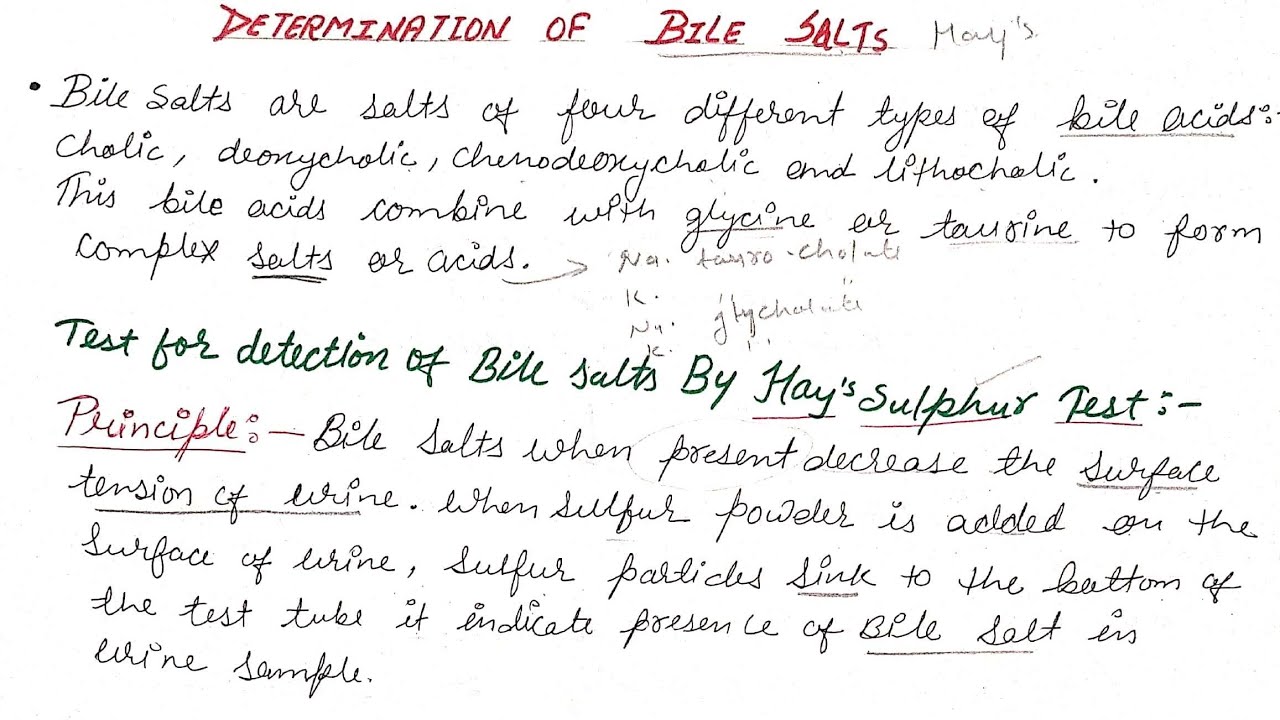 DETERMINATION OF BILE SALTS Hay's
• Bile Salts are salts of four different types of bile acids:-
Cholic, deoxycholic, Chenodeoxycholic and lithocholic.
This bile acids combine with glycine or taurine to form
complex salts or acids. → Na. tauro-cholate
K. " "
Na. glycholate
K " "
Test for detection of Bile salts By Hay's Sulphur Test:-
Principle:- Bile salts when present decrease the surface
tension of urine. When sulfur powder is added on the
surface of urine, sulfur particles sink to the bottom of
the test tube it indicate presence of Bile salt in
urine sample.